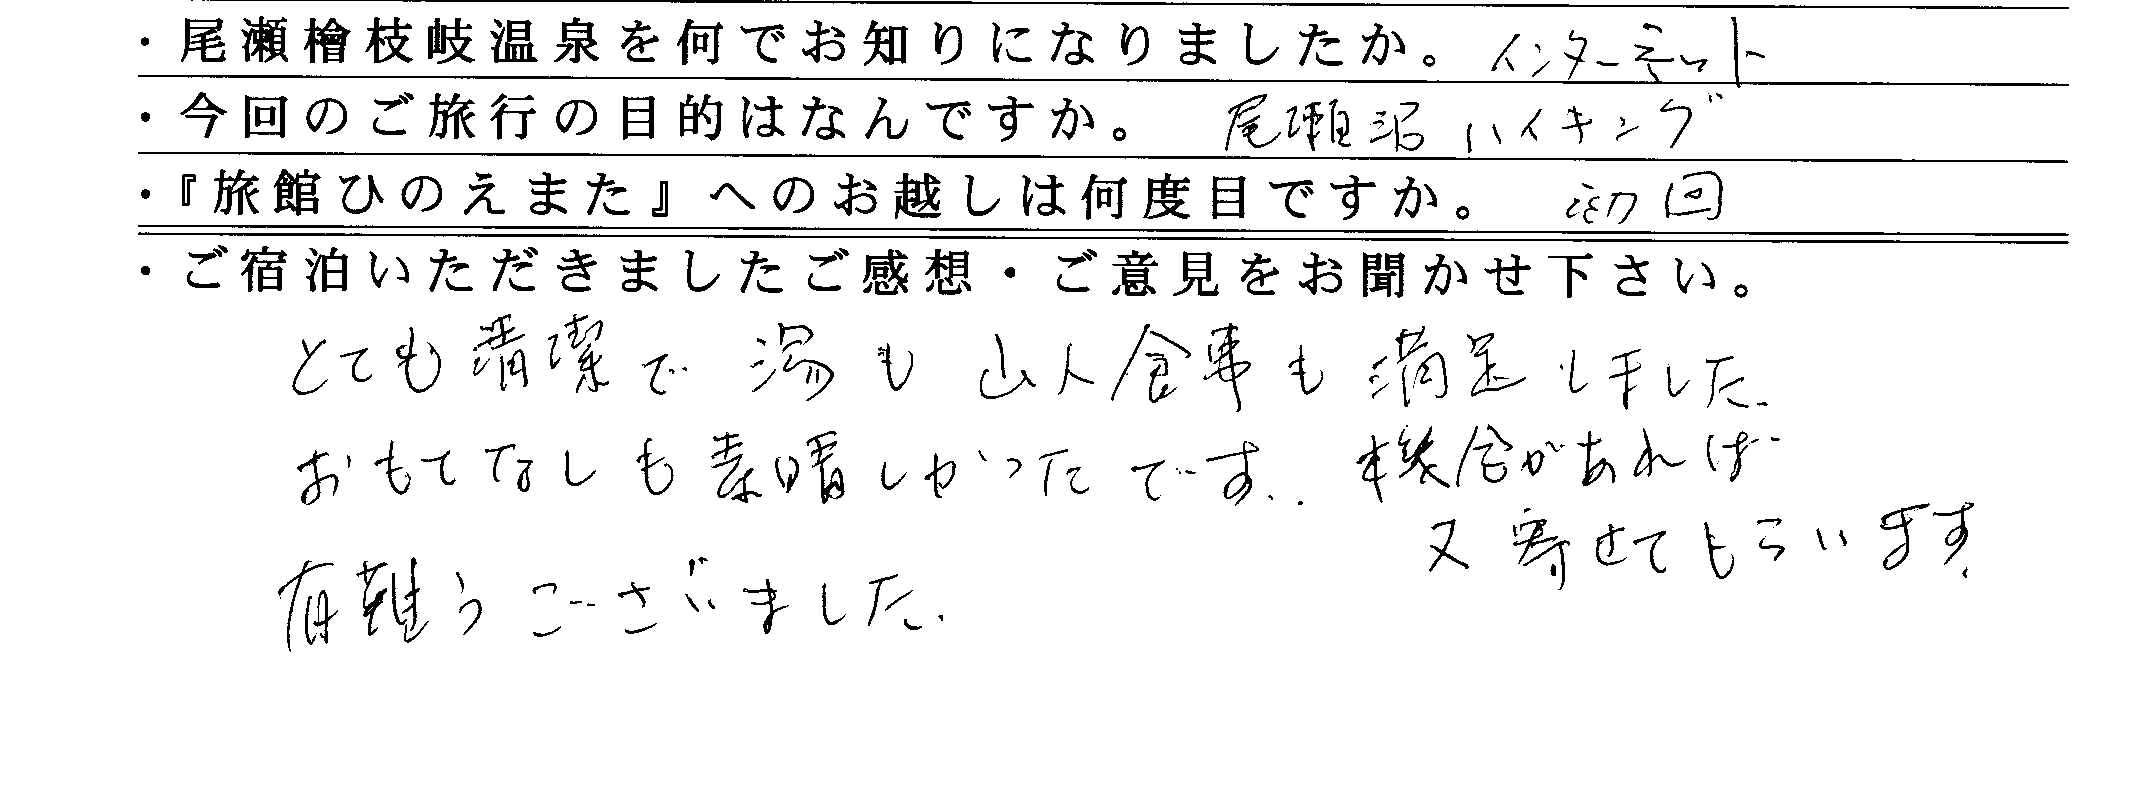 ・尾瀬檜枝岐温泉を何でお知りになりましたか。 インターネット
・今回のご旅行の目的はなんですか。 尾瀬沼ハイキング
・『旅館ひのえまた』へのお越しは何度目ですか。 初回
・ご宿泊いただきましたご感想・ご意見をお聞かせ下さい。
とても清潔で 湯も 山人食事も満足しました.
おもてなしも素晴しかったです.. 機会があれば
又寄せてもらいます.
有難うございました.